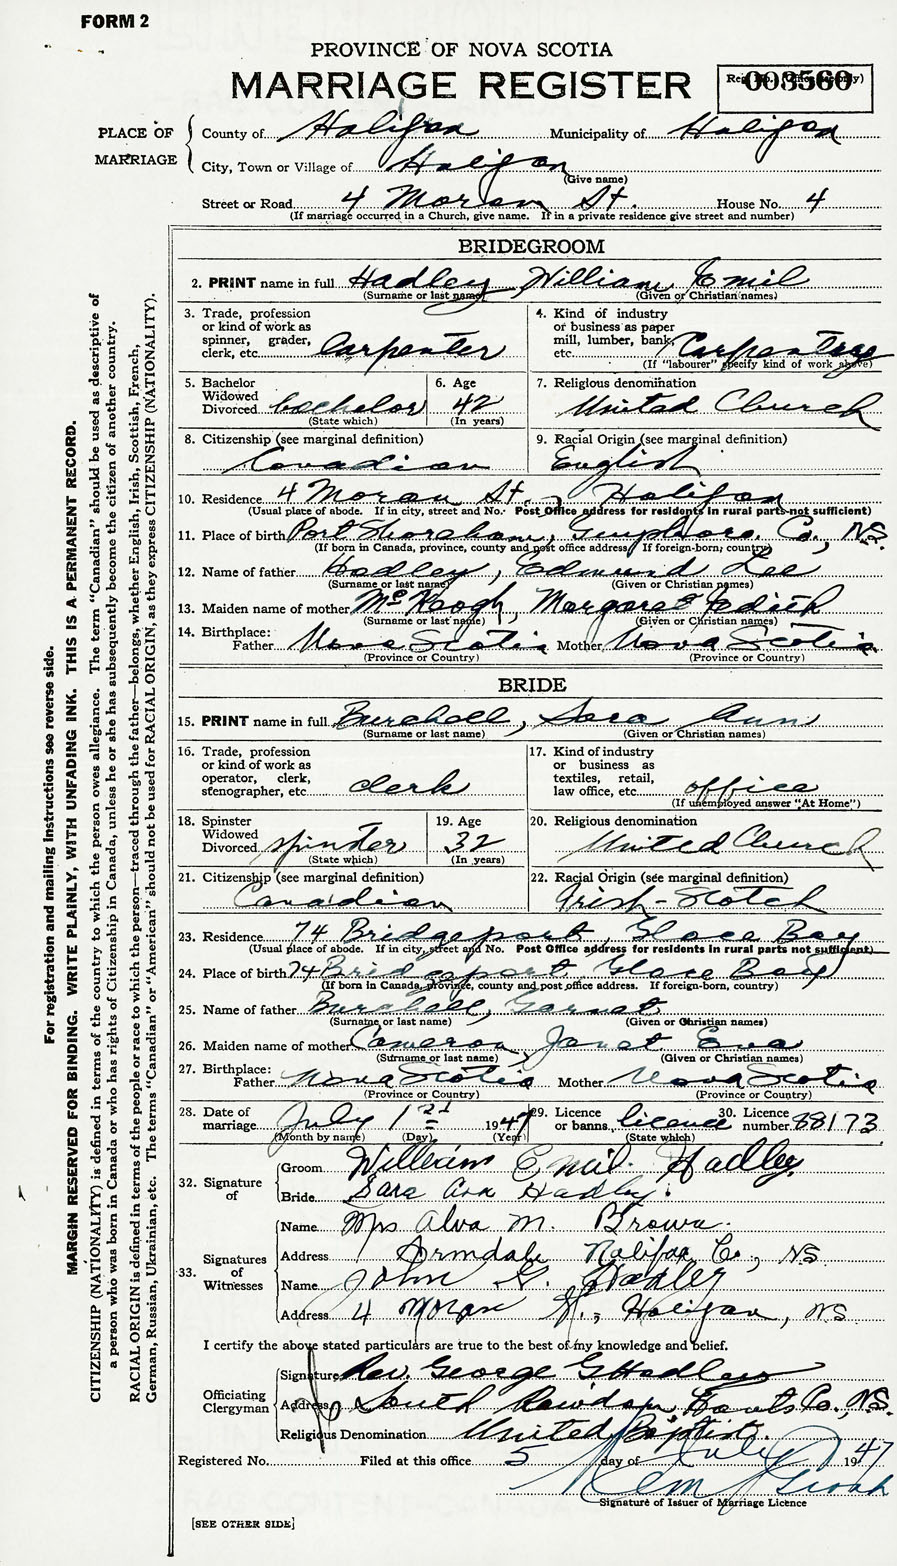 FORM 2
PROVINCE OF NOVA SCOTIA
MARRIAGE REGISTER
Reg. No. (Office use only)
008560
PLACE OF MARRIAGE
County of Halifax Municipality of Halifax
City, Town or Village of Halifax
(Give name)
Street or Road 4 Moran St. House No. 4
(If marriage occurred in a Church, give name. If in a private residence give street and number)
BRIDEGROOM
2. PRINT name in full Hadley, William Emil
(Surname or last name) (Given or Christian names)
3. Trade, profession or kind of work as spinner, grader, clerk, etc. Carpenter
4. Kind of industry or business as paper mill, lumber, bank, etc.
(If "labourer" specify kind of work above)
5. Bachelor Widowed Divorced bachelor
(State which)
6. Age 42
(In years)
7. Religious denomination
United Church
8. Citizenship (see marginal definition)
Canadian
9. Racial Origin (see marginal definition)
English
10. Residence 4 Moran St., Halifax
(Usual place of abode. If in city, street and No. Post Office address for residents in rural parts not sufficient)
11. Place of birth Port Shoreham, Co., N.S.
(If born in Canada, province, county and post office address. If foreign-born, country)
12. Name of father Hadley, Edmund Lee
(Surname or last name) (Given or Christian names)
13. Maiden name of mother McKeogh, Margaret Edith
(Surname or last name) (Given or Christian names)
14. Birthplace:
Father Nova Scotia Mother Nova Scotia
(Province or Country) (Province or Country)
BRIDE
15. PRINT name in full Burchell, Sara Ann
(Surname or last name) (Given or Christian names)
16. Trade, profession or kind of work as operator, clerk, stenographer, etc. clerk
17. Kind of industry or business as textiles, retail, law office, etc. office
(If unemployed answer "At Home")
18. Spinster Widowed Divorced spinster
(State which)
19. Age 32
(In years)
20. Religious denomination
United Church
21. Citizenship (see marginal definition)
Canadian
22. Racial Origin (see marginal definition)
Irish-Scotch
23. Residence 74 Bridgeport, Glace Bay
(Usual place of abode. If in city, street and No. Post Office address for residents in rural parts not sufficient)
24. Place of birth 74 Bridgeport, Glace Bay
(If born in Canada, province, county and post office address. If foreign-born, country)
25. Name of father Burchell, Garnet
(Surname or last name) (Given or Christian names)
26. Maiden name of mother Cameron, Janet Eva
(Surname or last name) (Given or Christian names)
27. Birthplace:
Father Nova Scotia Mother Nova Scotia
(Province or Country) (Province or Country)
28. Date of marriage July 1st 1947
(Month by name) (Day) (Year)
29. Licence or banns licence
(State which)
30. Licence number 88173
32. Signature of
Groom William Emil Hadley
Bride Sara Ann Hadley
33. Signatures of Witnesses
Name Mrs Alva M. Brown
Address Armdale Halifax Co., NS
Name John G. Hadley
Address 4 Moran St., Halifax, NS
I certify the above stated particulars are true to the best of my knowledge and belief.
Officiating Clergyman
Signature Rev. George G Hadley
Address South Rawdon, Hants Co., N.S.
Religious Denomination United Baptist.
Registered No. Filed at this office 5 day of July 1947
Signature of Issuer of Marriage Licence
[SEE OTHER SIDE]
For registration and mailing instructions see reverse side.
MARGIN RESERVED FOR BINDING. WRITE PLAINLY, WITH UNFADING INK. THIS IS A PERMANENT RECORD.
CITIZENSHIP (NATIONALITY) is defined in terms of the country to which the person owes allegiance. The term "Canadian" should be used as descriptive of
a person who was born in Canada or who has rights of Citizenship in Canada, unless he or she has subsequently become the citizen of another country.
RACIAL ORIGIN is defined in terms of the people or race to which the person—traced through the father—belongs, whether English, Irish, Scottish, French,
German, Russian, Ukrainian, etc. The terms "Canadian" or "American" should not be used for RACIAL ORIGIN, as they express CITIZENSHIP (NATIONALITY).